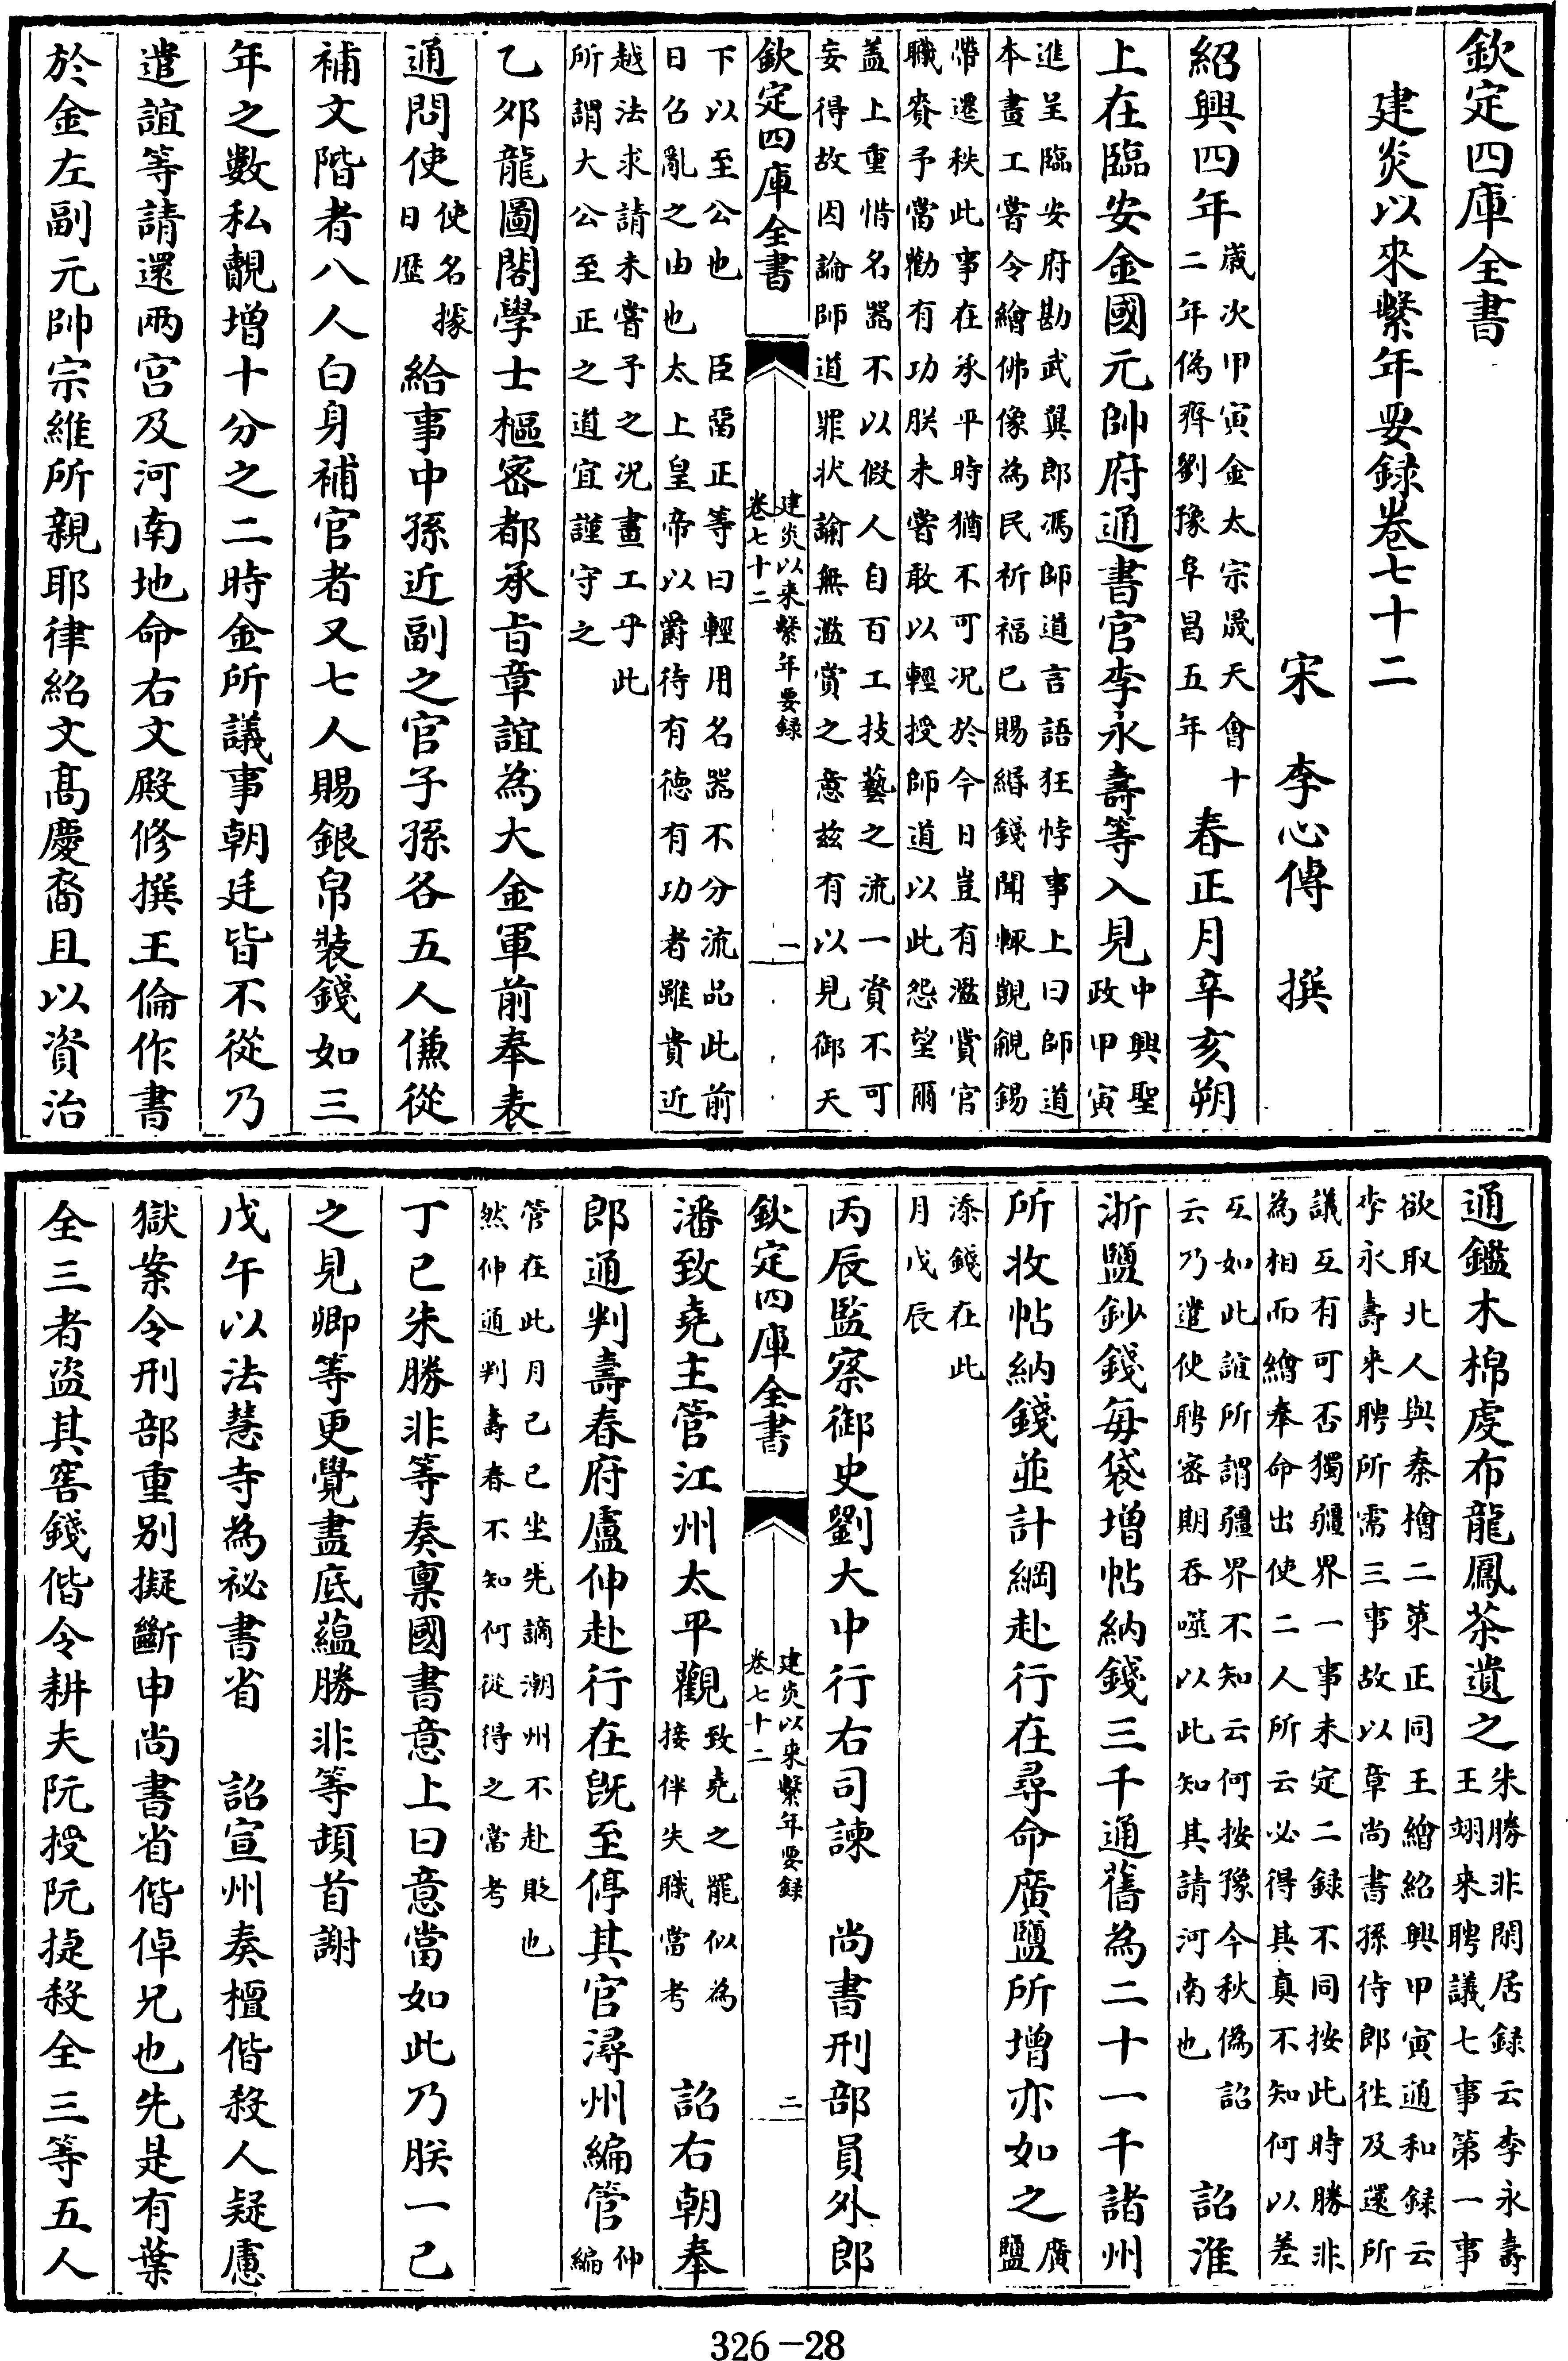 欽定四庫全書
建炎以來繫年要録卷七十二
宋 李心傳 撰
紹興四年歲次甲寅金太宗晟天會十二年偽齊劉豫阜昌五年春正月辛亥朔
上在臨安金國元帥府通書官李永壽等入見中興聖政甲寅
進呈臨安府勘武翼郎馮師道言語狂悖事上曰師道
本畫工嘗令繪佛像為民祈福已賜緡錢聞輒覬覦錫
帶遷秩此事在承平時猶不可况於今日豈有濫賞官
職賚予當勸有功朕未嘗敢以輕授師道以此怨望爾
蓋上重惜名器不以假人自百工技藝之流一資不可
妄得故因論師道罪狀諭無濫賞之意兹有以見御天
欽定四庫全書
建炎以來繫年要録
卷七十二
一
下以至公也 臣畱正等曰輕用名器不分流品此前
日召亂之由也太上皇帝以爵待有徳有功者雖貴近
越法求請未嘗予之况畫工乎此
所謂大公至正之道宜謹守之
乙夘龍圖閣學士樞密都承㫖章誼為大金軍前奉表
通問使使名據日歴給事中孫近副之官子孫各五人傔從
補文階者八人白身補官者又七人賜銀帛裝錢如三
年之數私覿增十分之二時金所議事朝廷皆不從乃
遣誼等請還兩宫及河南地命右文殿修撰王倫作書
於金左副元帥宗維所親耶律紹文髙慶裔且以資治
通鑑木棉䖍布龍鳳茶遺之朱勝非閒居録云李永壽王翊来聘議七事第一事
欲取北人與秦檜二策正同王繪紹興甲寅通和録云
李永壽来聘所需三事故以章尚書孫侍郎往及還所
議互有可否獨疆界一事未定二録不同按此時勝非
為相而繪奉命出使二人所云必得其真不知何以差
互如此誼所謂疆界不知云何按豫今秋偽詔
云乃遣使聘密期吞噬以此知其請河南也 詔淮
浙鹽鈔錢每袋增帖納錢三千通舊為二十一千諸州
所收帖納錢並計綱赴行在尋命廣鹽所增亦如之廣鹽
添錢在此
月戊辰
丙辰監察御史劉大中行右司諫 尚書刑部員外郎
欽定四庫全書
建炎以來繫年要録
卷七十二
二
潘致堯主管江州太平觀致堯之罷似為接伴失職當考 詔右朝奉
郎通判壽春府盧仲赴行在既至停其官潯州編管仲編
管在此月己巳坐先謫潮州不赴貶也
然仲通判壽春不知何從得之當考
丁巳朱勝非等奏稟國書意上曰意當如此乃朕一己
之見卿等更覺盡底藴勝非等頓首謝
戊午以法慧寺為祕書省 詔宣州奏檀偕殺人疑慮
獄案令刑部重别擬斷申尚書省偕倬兄也先是有葉
全三者盜其窖錢偕令耕夫阮授阮捷殺全三等五人
326-28